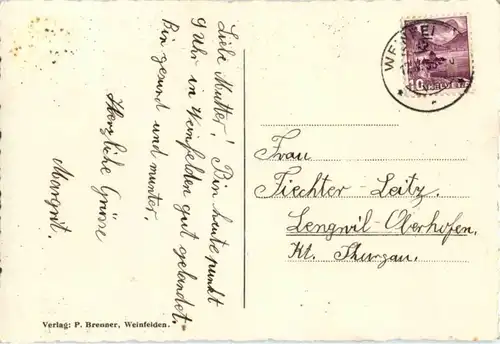 Liebe Mutter! Bin heute punkt
9 Uhr in Weinfelden gut gelandet.
Bin gesund und munter.
Herzliche Grüsse
Margrit.
Frau
Fiechter-Leitz.
Lengwil-Oberhofen.
Kt. Thurgau.
Verlag: P. Brenner, Weinfelden.